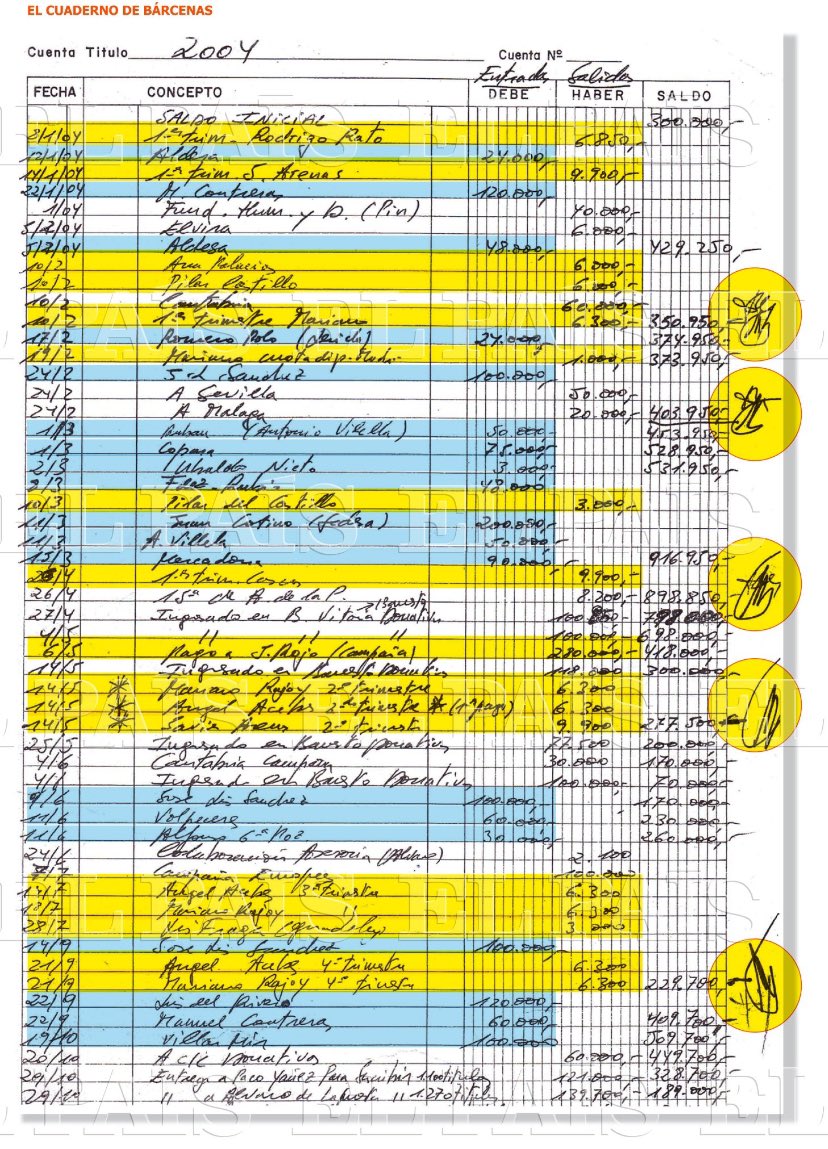 EL CUADERNO DE BÁRCENAS
Cuenta Titulo 2004 Cuenta Nº
Entradas Salidas
FECHA CONCEPTO DEBE HABER SALDO
SALDO INICIAL 300.000,-
8/1/04 1er trim. Rodrigo Rato 6.850,-
12/1/04 Aldesa 24.000,-
14/1/04 1er trim J. Arenas 9.900,-
22/1/04 M. Contreras 120.000,-
1/04 Fund. Hum. y D. (Pin) 40.000,-
5/2/04 Elvira 6.000,-
5/2/04 Aldesa 48.000,- 429.250,-
10/2 Ana Palacio 6.000,-
10/2 Pilar Castillo 6.000,-
10/2 Cantabria 60.000,-
10/2 1er trimestre Mariano 6.300,- 350.950,-
17/2 Romero Polo 24.000,- 374.950,-
19/2 Mariano cuota dip. 1.000,- 373.950,-
24/2 J.L Sanchez 100.000,-
24/2 A Sevilla 50.000,-
24/2 A Malaga 20.000,- 403.950,-
1/3 Rubau (Antonio Vilella) 50.000,- 453.950,-
1/3 Copasa 75.000,- 528.950,-
2/3 Ubaldo Nieto 3.000,- 531.950,-
9/3 Fdez. Rubio 48.000
10/3 Pilar del Castillo 3.000,-
11/3 Juan Cotino (Sedesa) 200.000,-
11/3 A. Vilella 50.000,-
15/3 Mercadona 90.000,- 916.950,-
/4 1er trim. Cascos 9.900,-
26/4 15ª de A. de la P. 8.200,- 898.850,-
27/4 Ingresado en B. Vitoria Donativos 100. 798.
4/5 " " " 100.000,- 698.000,-
6/5 Pago a J. Rojo (Campaña) 280.000,- 418.000,-
14/5 Ingresado en Banesto Donativos 118.000 300.000,-
14/5 * Mariano Rajoy 2º trimestre 6.300
14/5 * Angel Acebes 2º trimestre * (1er pago) 6.300
14/5 * Javier Arenas 2º trimestre 9.900 277.500
25/5 Ingresado en Banesto Donativos 77.500 200.000,-
4/6 Cantabria Campaña 30.000 170.000,-
4/6 Ingresado en Banesto Donativos 100.000,- 70.000,-
9/6 José Luis Sanchez 100.000,- 170.000,-
11/6 Volpeceres 60.000 230.000,-
11/6 Alfonso Gª Pozo 30.000 260.000,-
24/6 Colaboracion Asesoria (Alvaro) 2.100
7/7 Campaña Europeas 100.000
14/7 Angel Acebes 3º trimestre 6.300
18/7 Mariano Rajoy " 6.300
28/7 3.000
14/9 José Luis Sanchez 100.000,-
21/9 Angel Acebes 4º trimestre 6.300
21/9 Mariano Rajoy 4º trimestre 6.300 229.700,-
22/9 Luis del Rivero 120.000,-
22/9 Manuel Contreras 60.000 409.700,-
19/10 Villar Mir 100.000 509.700,-
20/10 A c/c Donativos 60.000,- 449.700,-
29/10 Entrega a Paco Yañez para suscribir 1100 titulos 121.000,- 328.700,-
29/10 " a Alvaro de Lapuerta " 1270 titulos 139.700,- 189.000,-
EL PAÍS